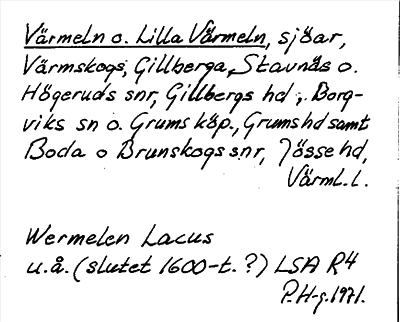 Värmeln o. Lilla Värmeln, sjöar,
Värmskogs, Gillberga, Stavnäs o.
Högeruds snr, Gillbergs hd, Borg-
viks sn o. Grums köp., Grums hd samt
Boda o Brunskogs snr, Jösse hd,
Värml. l.
Wermelen Lacus
u.å. (slutet 1600-t. ?) LSA R4
P.H-g. 1971.